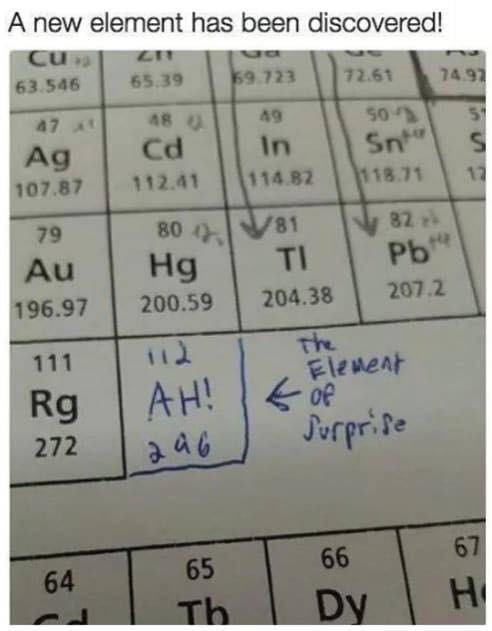 A new element has been discovered!
Cu
63.546 65.39 69.723 72.61 74.92
47 48 49 50
Ag Cd In Sn
107.87 112.41 114.82 118.71
79 80 81 82
Au Hg Tl Pb
196.97 200.59 204.38 207.2
111 112 The
Rg AH! Element
272 296 ← of
Surprise
64 65 66 67
Tb Dy